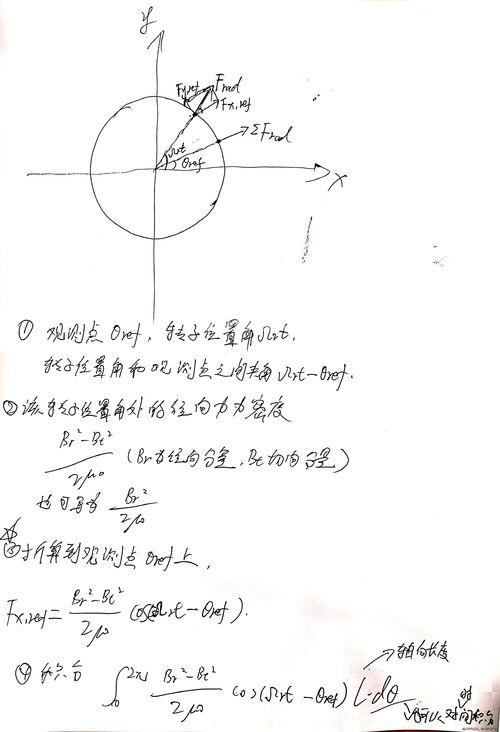 y
Fy,ref
Frad
Fx,ref
ΣFrad
Ωrt
θref
x
① 观测点 θref, 转子位置角 Ωrt,
转子位置角和观测点之间夹角 Ωrt-θref.
② 该转子位置角处的径向力力密度
Br²-Bt² / 2μ0 (Br为径向分量, Bt切向分量)
也可写为 Br² / 2μ0
③ 折算到观测点 θref 上,
Fx,ref = Br²-Bt² / 2μ0 cos(Ωrt-θref).
④ 积分
∫0 2π Br²-Bt² / 2μ0 cos(Ωrt-θref) L·dθ
轴向长度
对时间积分